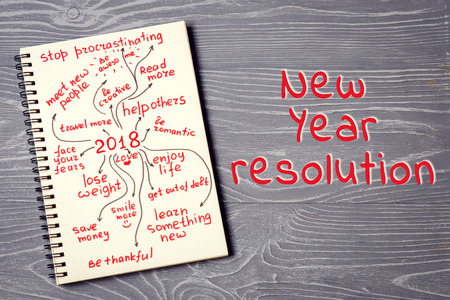 stop procrastinating
Be
awesome
meet new
people
Be
creative
Read
more
help others
travel more
Be
romantic
2018
face
your
fears
love
enjoy
life
lose
weight
get out of debt
smile
more
learn
something
new
save
money
Be thankful
New
Year
resolution